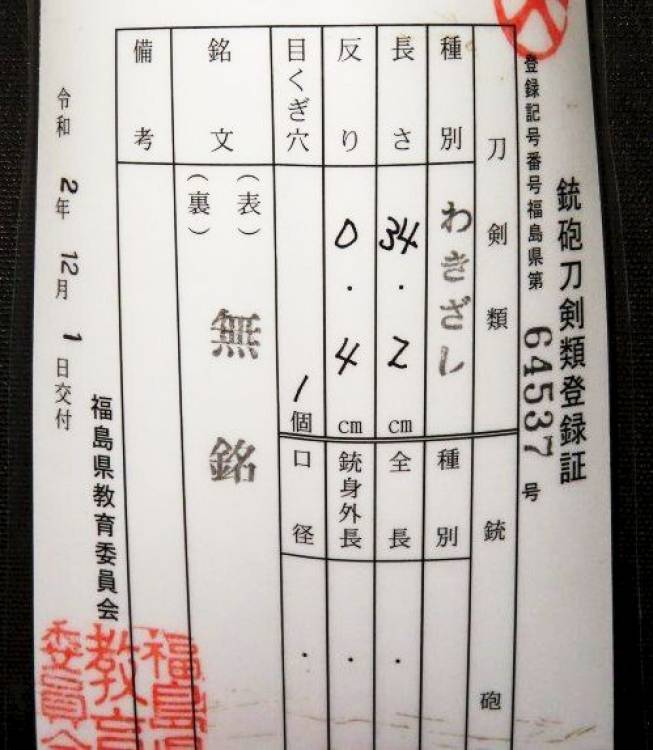 銃砲刀剣類登録証
登録記号番号福島県第 64537 号
刀剣類
種別 わきざし
長さ 34.2 cm
反り 0.4 cm
目くぎ穴 1 個
銘文 (表) (裏) 無銘
備考
銃砲
種別
全長 .
銃身外長 .
口径 .
令和 2年 12月 1日交付
福島県教育委員会
福島県
教育
委員会